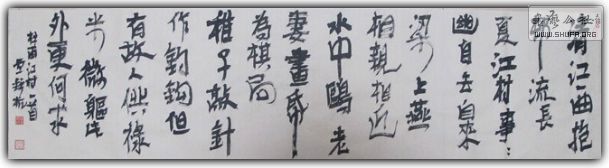 清江一曲抱
邨流長
夏江村事〻
幽自去自来
梁上燕
相親相近
水中鷗老
妻畫紙
為棋局
稚子敲針
作釣鈎但
有故人供禄
米微軀此
外更何求
杜甫江村一首
WWW.SHUFA.ORG